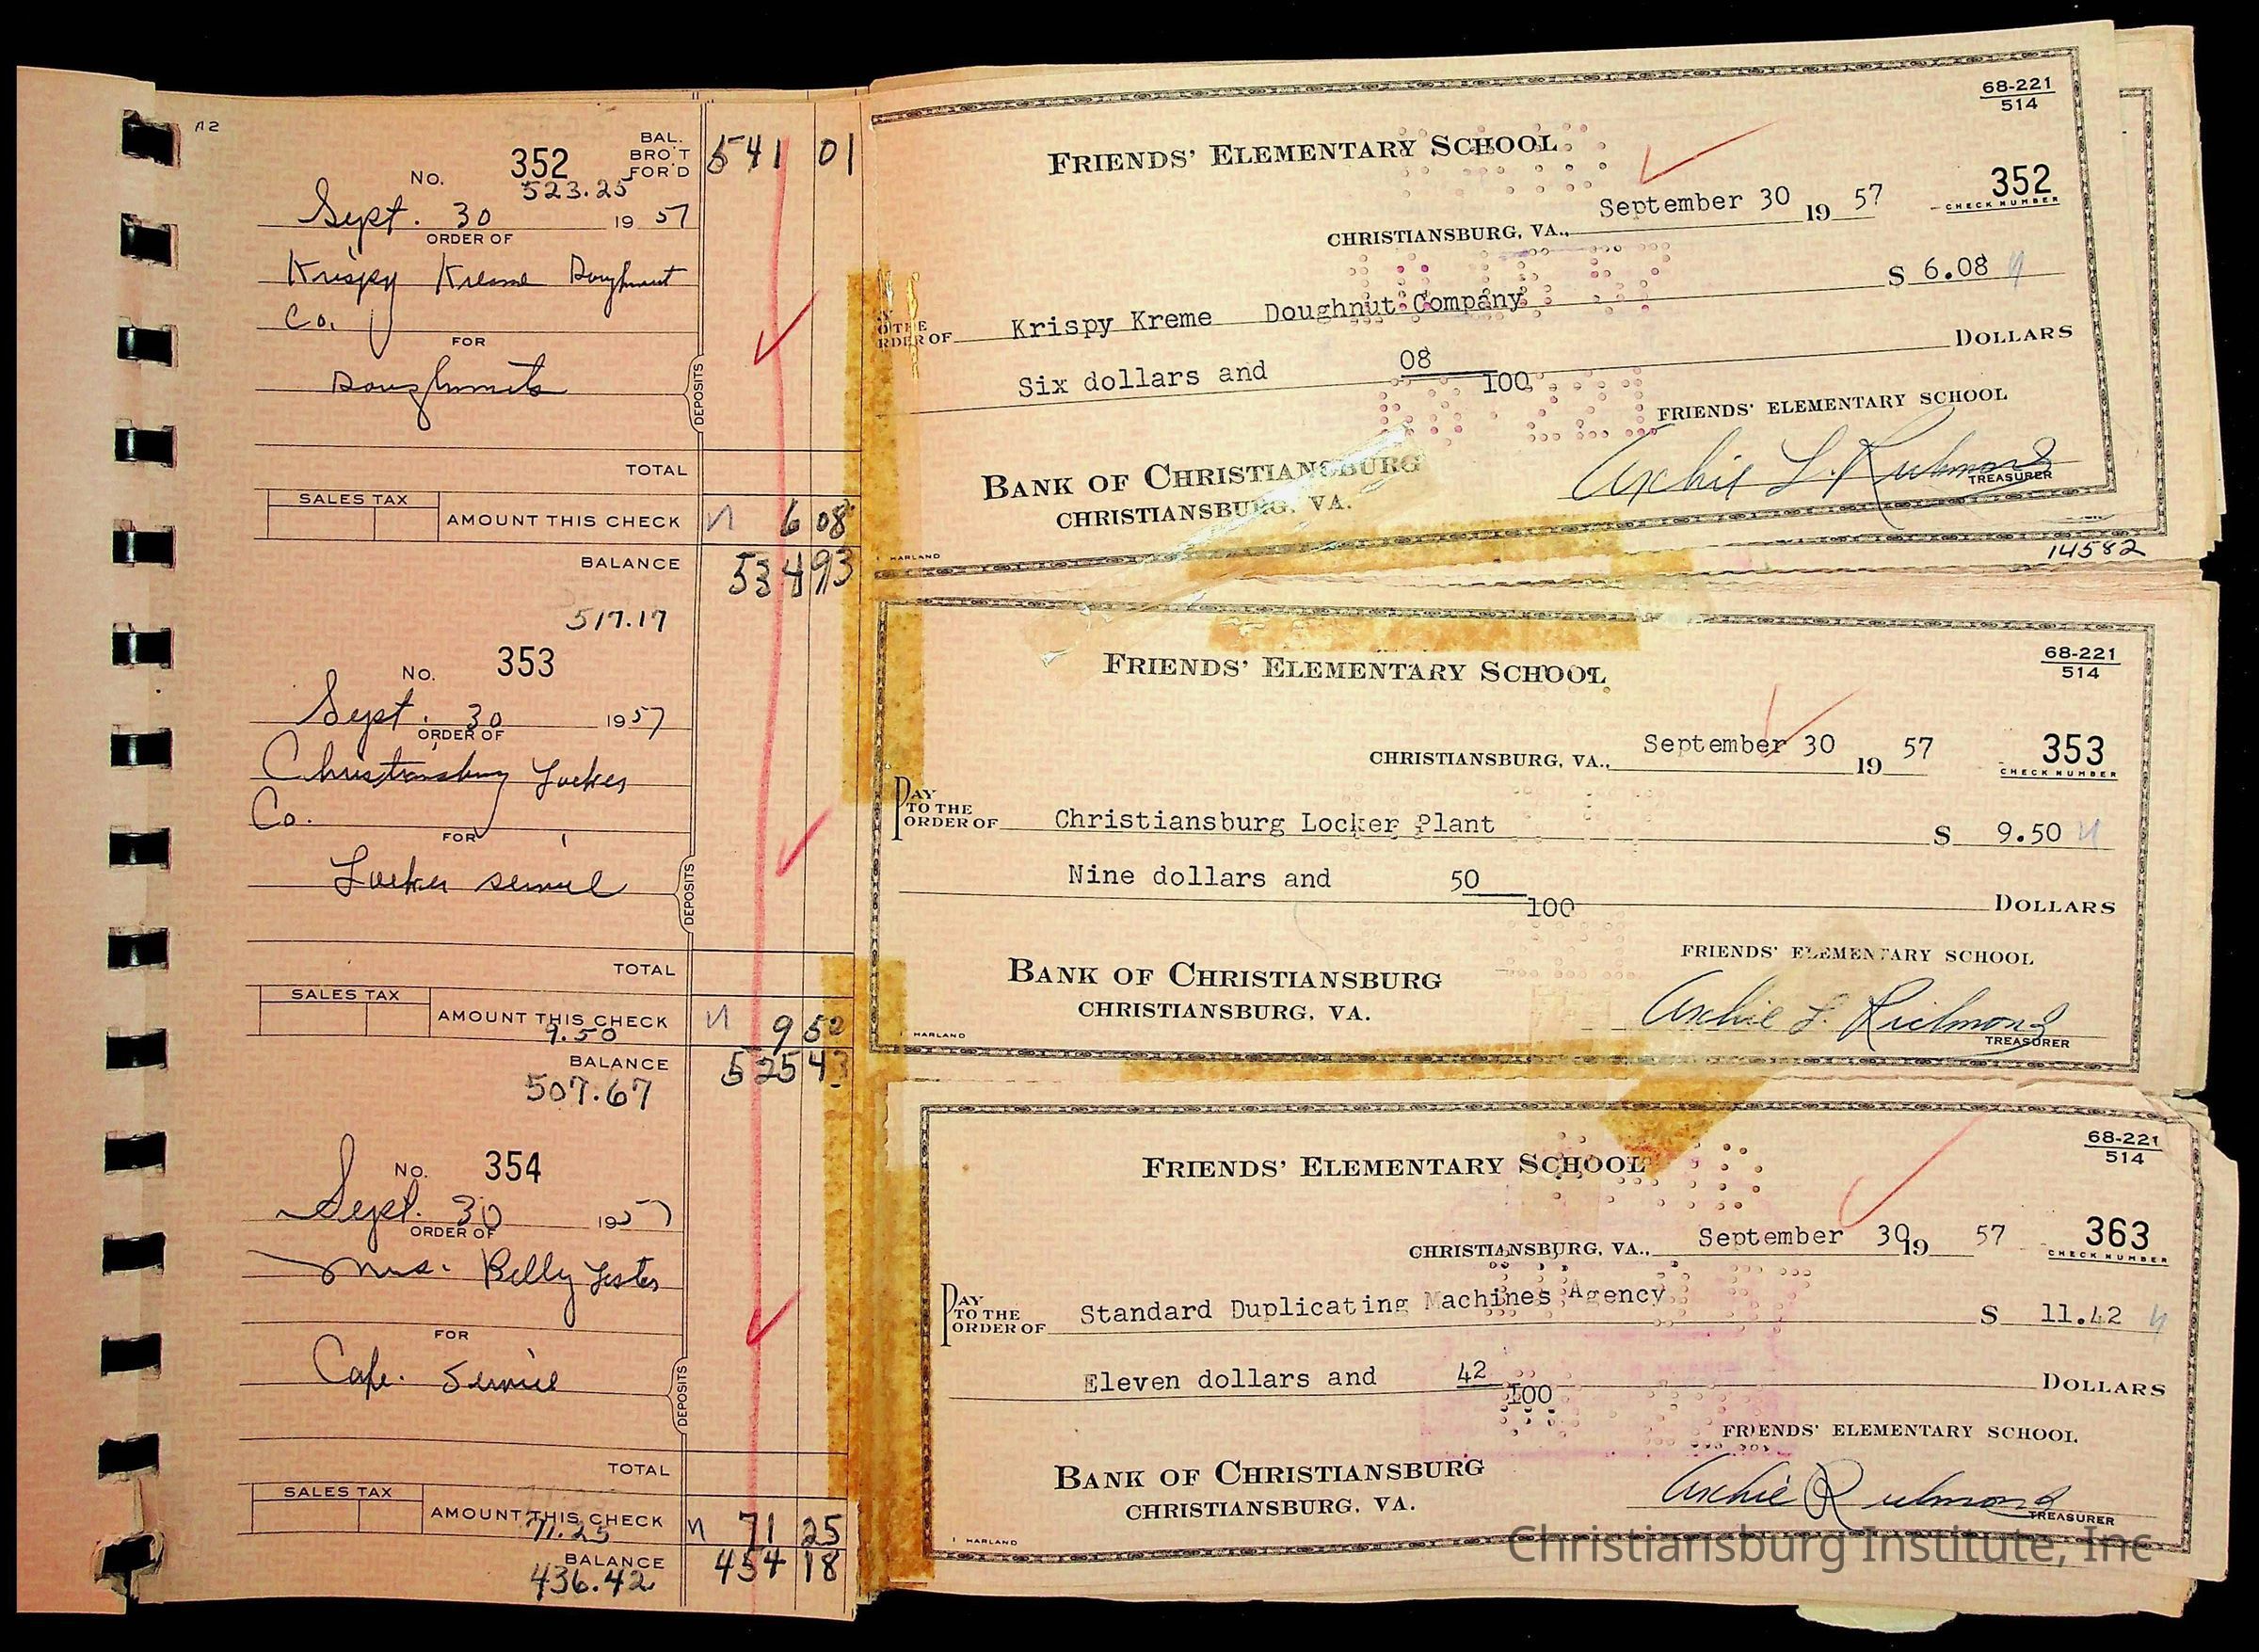 No. 352
BAL. BRO'T FOR'D 541 01
523.25
Sept. 30 19 57
ORDER OF
Krispy Kreme Doughnut
Co.
FOR
Doughnuts
DEPOSITS
TOTAL
SALES TAX
AMOUNT THIS CHECK 6 08
BALANCE 534 93
517.17
No. 353
Sept. 30 1957
ORDER OF
Christiansburg Locker
Co.
FOR
Locker service
DEPOSITS
TOTAL
SALES TAX
AMOUNT THIS CHECK 9 50
9.50
BALANCE 525 43
507.67
No. 354
Sept. 30 1957
ORDER OF
Mrs. Billy Lester
FOR
Cafe. Service
DEPOSITS
TOTAL
SALES TAX
AMOUNT THIS CHECK 71 25
71.25
BALANCE 454 18
436.42
68-221
514
FRIENDS' ELEMENTARY SCHOOL
352
CHECK NUMBER
CHRISTIANSBURG, VA., September 30 19 57
ORDER OF Krispy Kreme Doughnut Company $ 6.08
Six dollars and 08/100 DOLLARS
FRIENDS' ELEMENTARY SCHOOL
BANK OF CHRISTIANSBURG
CHRISTIANSBURG, VA.
Archie L. Richmond
TREASURER
HARLAND
14582
68-221
514
FRIENDS' ELEMENTARY SCHOOL
353
CHECK NUMBER
CHRISTIANSBURG, VA., September 30 19 57
PAY TO THE ORDER OF Christiansburg Locker Plant $ 9.50
Nine dollars and 50/100 DOLLARS
FRIENDS' ELEMENTARY SCHOOL
BANK OF CHRISTIANSBURG
CHRISTIANSBURG, VA.
Archie L. Richmond
TREASURER
HARLAND
68-221
514
FRIENDS' ELEMENTARY SCHOOL
363
CHECK NUMBER
CHRISTIANSBURG, VA., September 30 19 57
PAY TO THE ORDER OF Standard Duplicating Machines Agency $ 11.42
Eleven dollars and 42/100 DOLLARS
FRIENDS' ELEMENTARY SCHOOL
BANK OF CHRISTIANSBURG
CHRISTIANSBURG, VA.
Archie Richmond
TREASURER
HARLAND
Christiansburg Institute, Inc